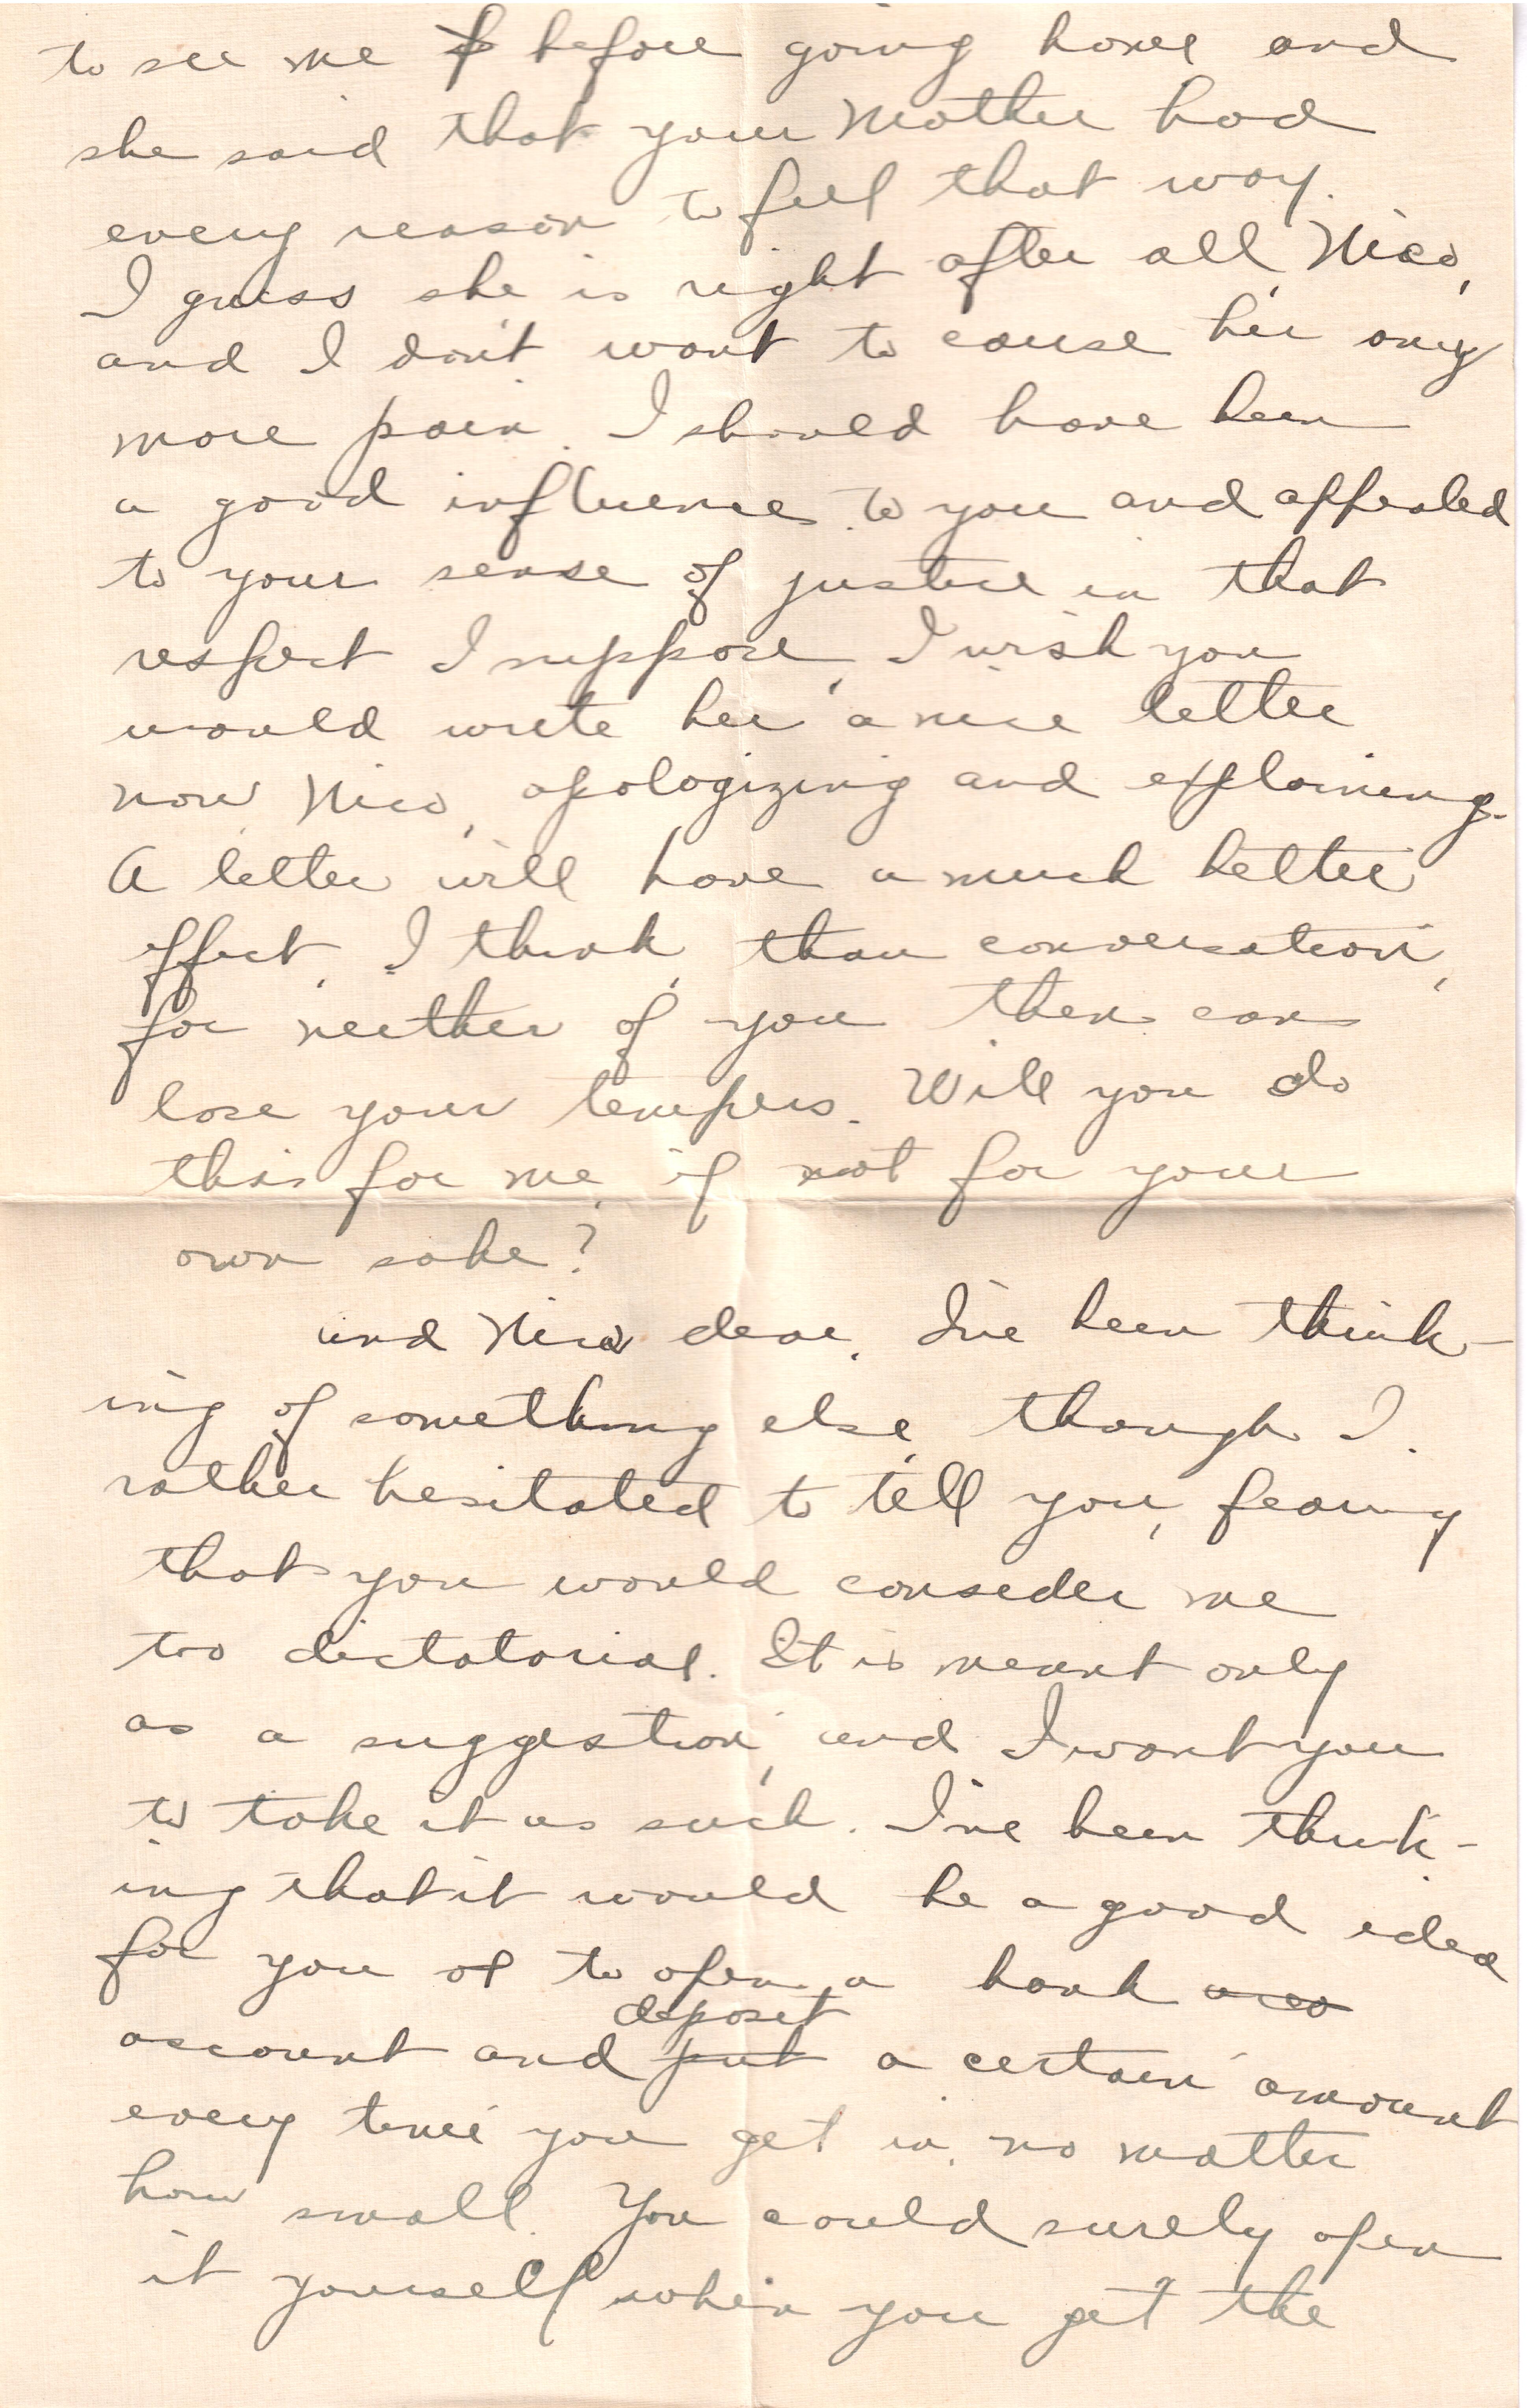 to see me before going home and
she said that your Mother had
every reason to feel that way.
I guess she is right after all, Nico,
and I don't want to cause her any
more pain. I should have been
a good influence to you and appealed
to your sense of justice in that
respect I suppose, I wish you
would write her a nice letter
now, Nico, apologizing and explaining.
A letter will have a much better
effect, I think, than conversation,
for neither of you then can
lose your tempers. Will you do
this for me, if not for your
own sake?
and Nico dear, I've been think-
ing of something else, though I
rather hesitated to tell you, fearing
that you would consider me
too dictatorial. It is meant only
as a suggestion, and I want you
to take it as such. I've been think-
ing that it would be a good idea
for you of to open a bank acco
deposit
account and put a certain amount
every time you get in, no matter
how small. You could surely open
it yourself when you get the